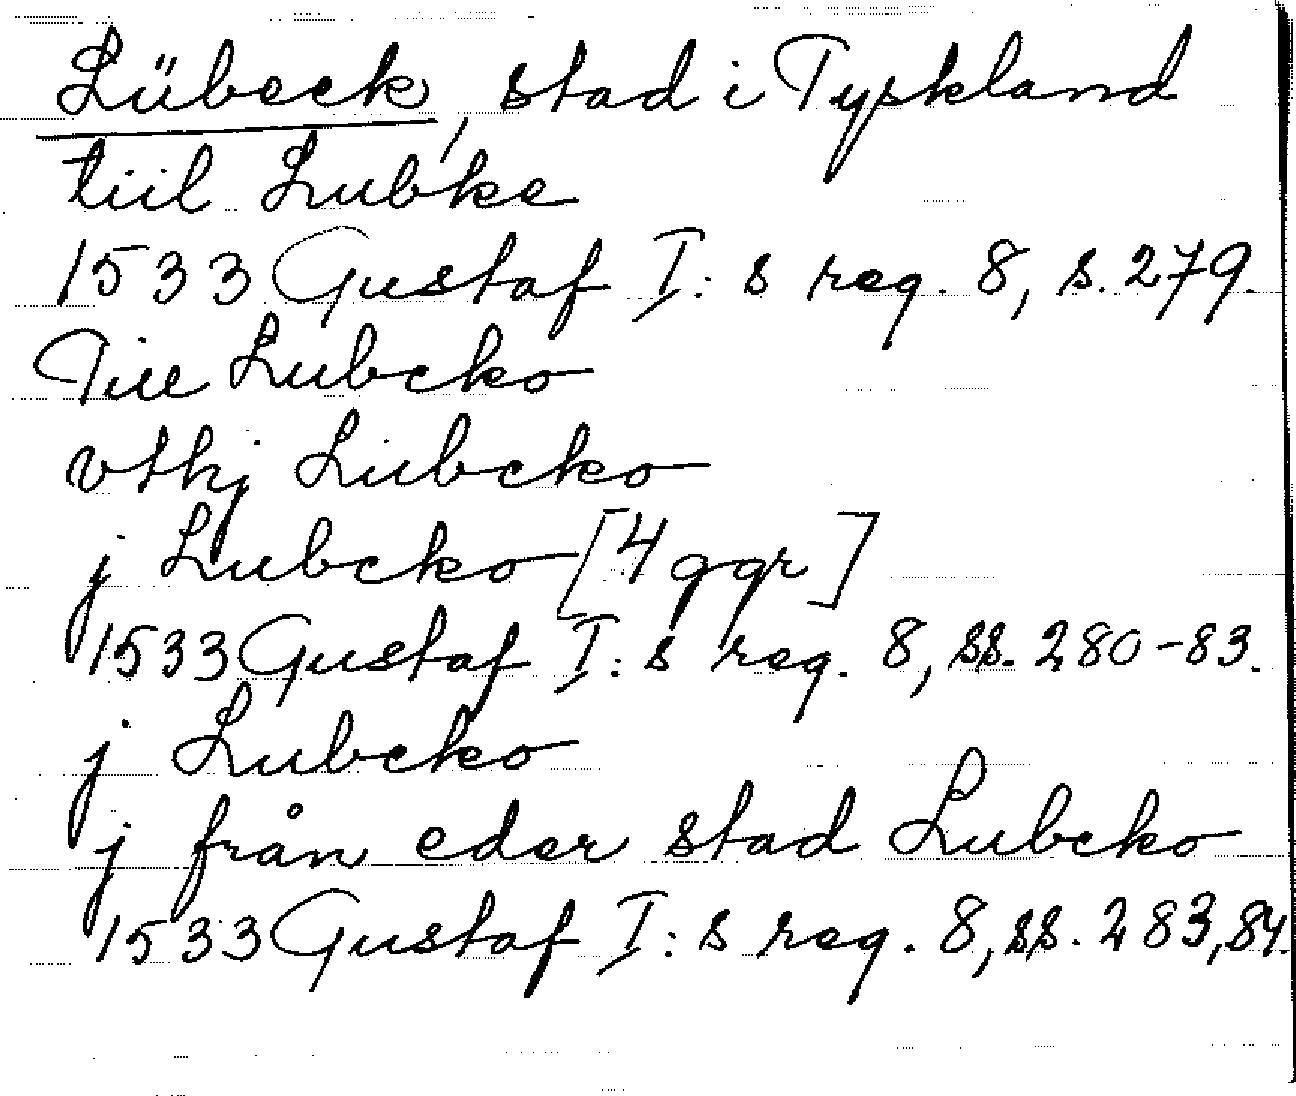 Lübeck, stad i Tyskland
tiil Lubke
1533 Gustaf I:s reg. 8, s. 279.
Till Lubcko
vthj Lubcko
j Lubcko [4 ggr]
1533 Gustaf I:s reg. 8, ss. 280-83.
j Lubcko
j från eder stad Lubcko
1533 Gustaf I:s reg. 8, ss. 283, 84.